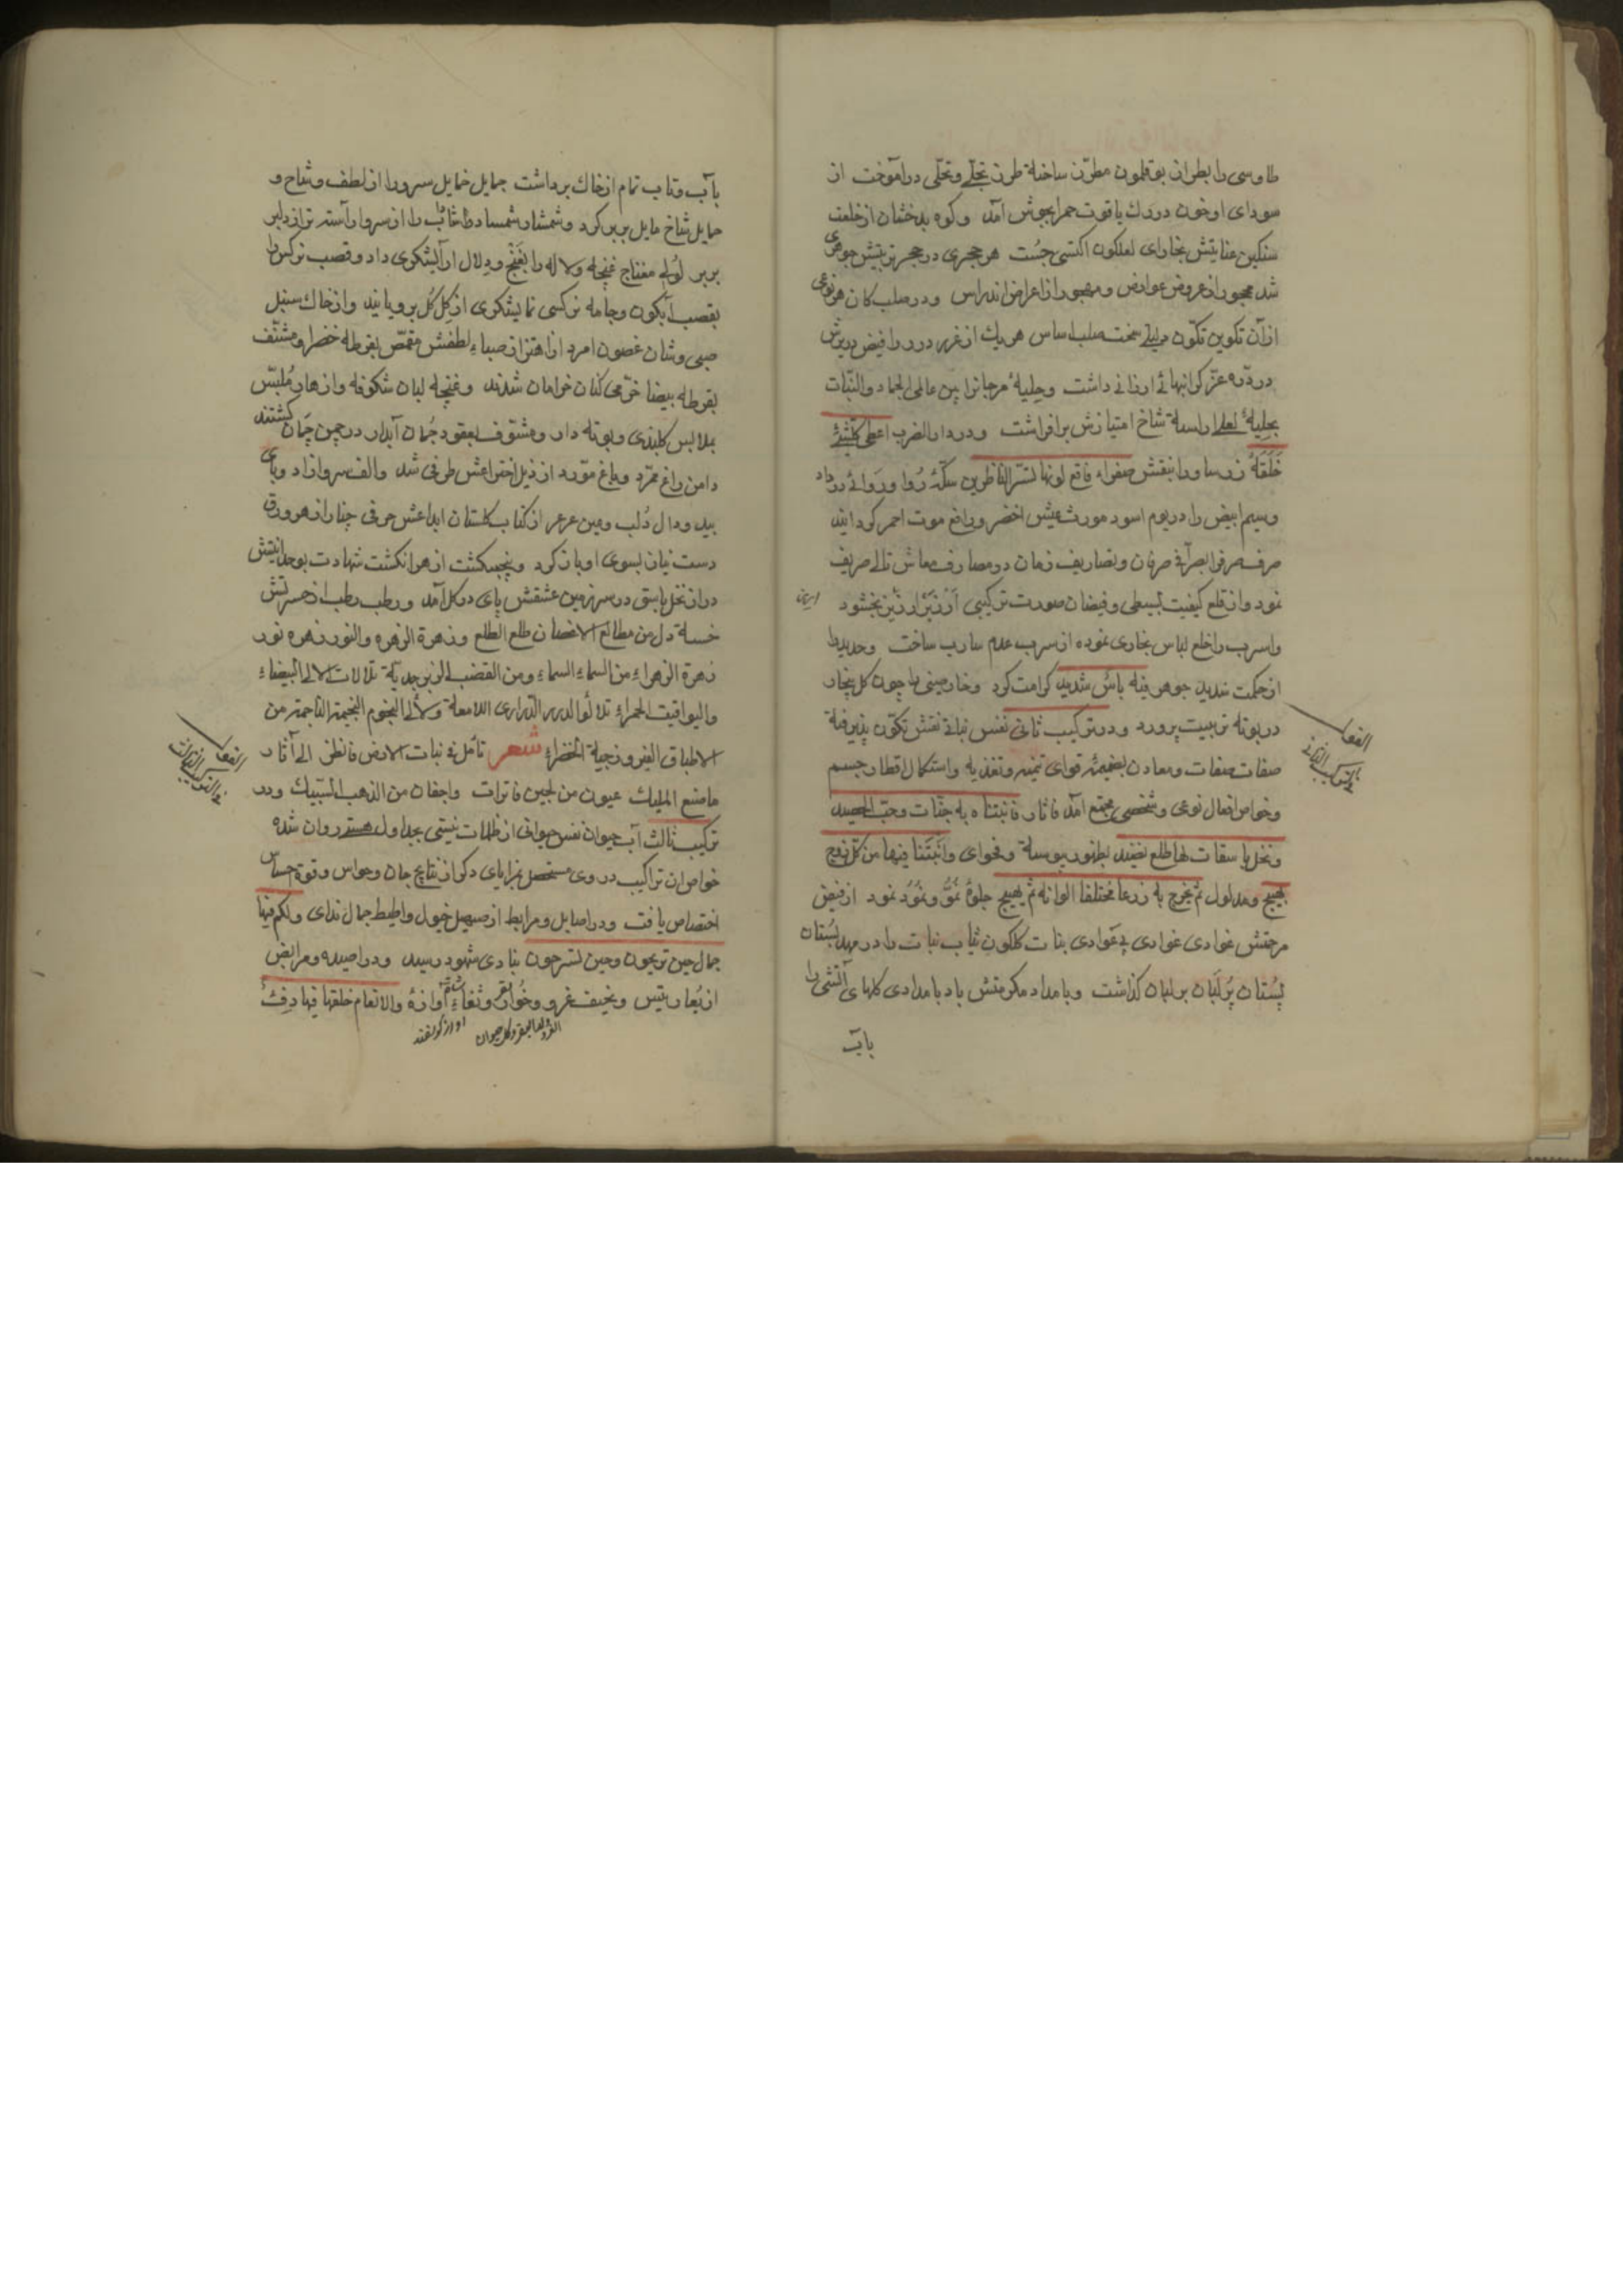 طاوسی را بطراز بوقلمون مطرّز ساخته طرز تجلّے وتحلّی درآموخت از
سودای او خون در رك یاقوت حمرا بجوش آمد وکوه بدخشان از خلعت
سنکین عنایتش بخارای لعلکون اکتسی جُست هر حجری در حجر تربیتش جوهری
شد محجور از عروض عوارض ومهجور از اعراض اندراس ودر صلب کان هر نوعی
از آن تکوین تکوّن سخت صلب اساس هر یك از غرر درر را فیض دریزش
در درّه عزّ کرانبهائے ارزانے داشت وحلیهٔ مرجانرا بین عالمی الجماد والنّبات
بحلیهٔ لعل اراسته شاخ امتیازش برافراشت ودر دار الضرب اعطی کلّ شئ
خَلقَهُ زر ساو را بنقش صفراء فاقع لونها تسرّ الناظرین سکّهٔ رُوا ورَوائے درداد
وسیم ابیض را در یوم اسود مورث عیش اخضر ورافع موت احمر کردانید
صرف صرفرا بصرّافے صرفان وتصاریف زمان در مصارف معاش تالے صریف
نمود واز قلع کیفیت بسیطی وفیضان صورت ترکیبی اَرزیزْ ارزیز بخشود
واسرب را خلع لباس بخاری نموده از سرب عدم سارب ساخت وحدید را
از حکمت شدید جوهر فیه بأس شدید کرامت کرد وخارصینی را چون کل بیخار
در بوته تربیت پرورد ودر ترکیب ثانی نفس نباتے نقش تکوّن پذیرفته
صفات صفات ومعادن بضمیمهٔ قوای تنمیه وتغذیه واستکمال اقطار جسم
وخواص افعال نوعی وشخصی مجتمع آمد فاثار فانبتنا به جنّات وحبّ الحصید
ونخل باسقات لها طلع نضید بظهور پیوسته وفحوای وانبتنا فیها من کلّ زوج
بهیج ومدلول ثم یخرج به زرعا مختلفا الوانه ثم یهیج جلوهٔ نُمُّو ونُمُود نمود از فیض
مرحمتش غوادی غوادی بنات کلکون ثیاب نبات را در مهد بُستان
پستان پُر لَبَان بر لبان کذاشت وبامداد مکرمتش باد بامدادی کلهای آتشی را
بآب
النفس
فے الترکیب الثانے
بآب وتاب تمام از خاك برداشت جمایل خمایل سرو را از لطف وشاح و
حمایل شاخ مایل بر بر کرد وشمشار شمشاد را از سرو آراسته تر از دلبر
بربر لؤلؤ مفتاح غنچه ولاله را بغَنْج ودِلال آرایشکری داد وقصب نرکس را
بقصب آبکون وجامه نرکسی نمایشکری از کِل کُل برویانید واز خاك سنبل
صبی وشان غصون امرد از اهتزاز صباء لطفش مقمّص بقرطه خضرا ومشنّف
بقرطه بیضا خرّمی کنان خرامان شدند وغنچه لبان شکوفه وازهار مُلبّس
بملابس کلبندی وبوته دار ومشنّوف بعقود جُمان آبدار در چمن چَمان کشتند
دامن راغ ممرّد وباغ مورّد از ذیل اخضر اعش طرفی شد والف سرو آزاد وبای
بید ودال دُلب وعین عرعر از کتاب کلستان ابداعش حرفی چنار از هر ورق
دست نیاز بسوی او باز کرد وپنجهکشت از هر انکشت شهادت بوحدانیتش
دراز نخل باسق در سرزمین عشقش پای در کل آمد ورطب رطب از حسرتش
خسته دل من مطالع الاغصان طلع الطلع وزهرة الزهره والنور زهره نور
زهرة الزهراء من السماء السماء ومن القضب الزبرجدیّة تلالات لالی البیضاء
والیواقیت الحمراء تلألؤ الدرر الدّراری اللامعة ولألأ النجوم النجیمة الناجمة من
الاطباق الفیروزجیة الخضراء شعر تأمل فے نبات الارض فانظر الے آثار
ما صنع الملیك عیون من لجین فاترات واجفان من الذهب السّبیك ودر
ترکیب ثالث آب حیوان نفس حیوانی از ظلمات نیستی بجداول هستی روان شده
خواص ان تراکیب در وی مستحصل بمزایای دکر از نتایج جان وحواس وقوة حساس
اختصاص یافت ودر اصایل ومرابط از صهیل خیول واطیط جمال ندای ولکم فیها
جمال حین تریحون وحین تسرحون بنادی شهود رسید ودر اصیده ومرابض
از یُعار تیس ونحیف غرو وخُوار وثغاء آوازهٔ والانعام خلقها فیها دِفئ
النفس